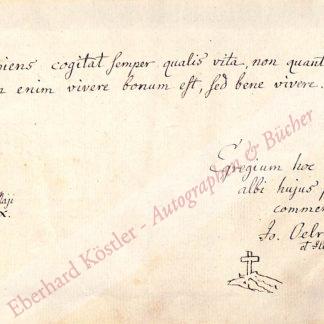 piens cogitat semper qualis vita, non quant
n enim vivere bonum est, sed bene vivere.
Egregium hoc
albi hujus p
comme
Jo. Oelr
Maji
X.
Eberhard Köstler - Autographen & Bücher